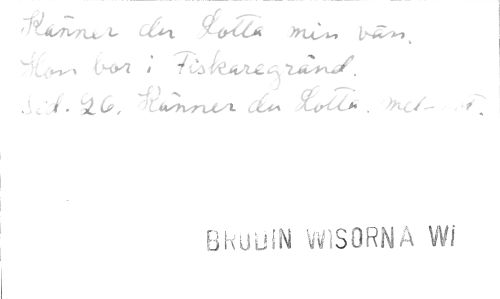 Känner du Lotta min vän.
Hon bor i Fiskaregränd.
Sid. 26. Känner du Lotta.
BRODIN WISORNA WI